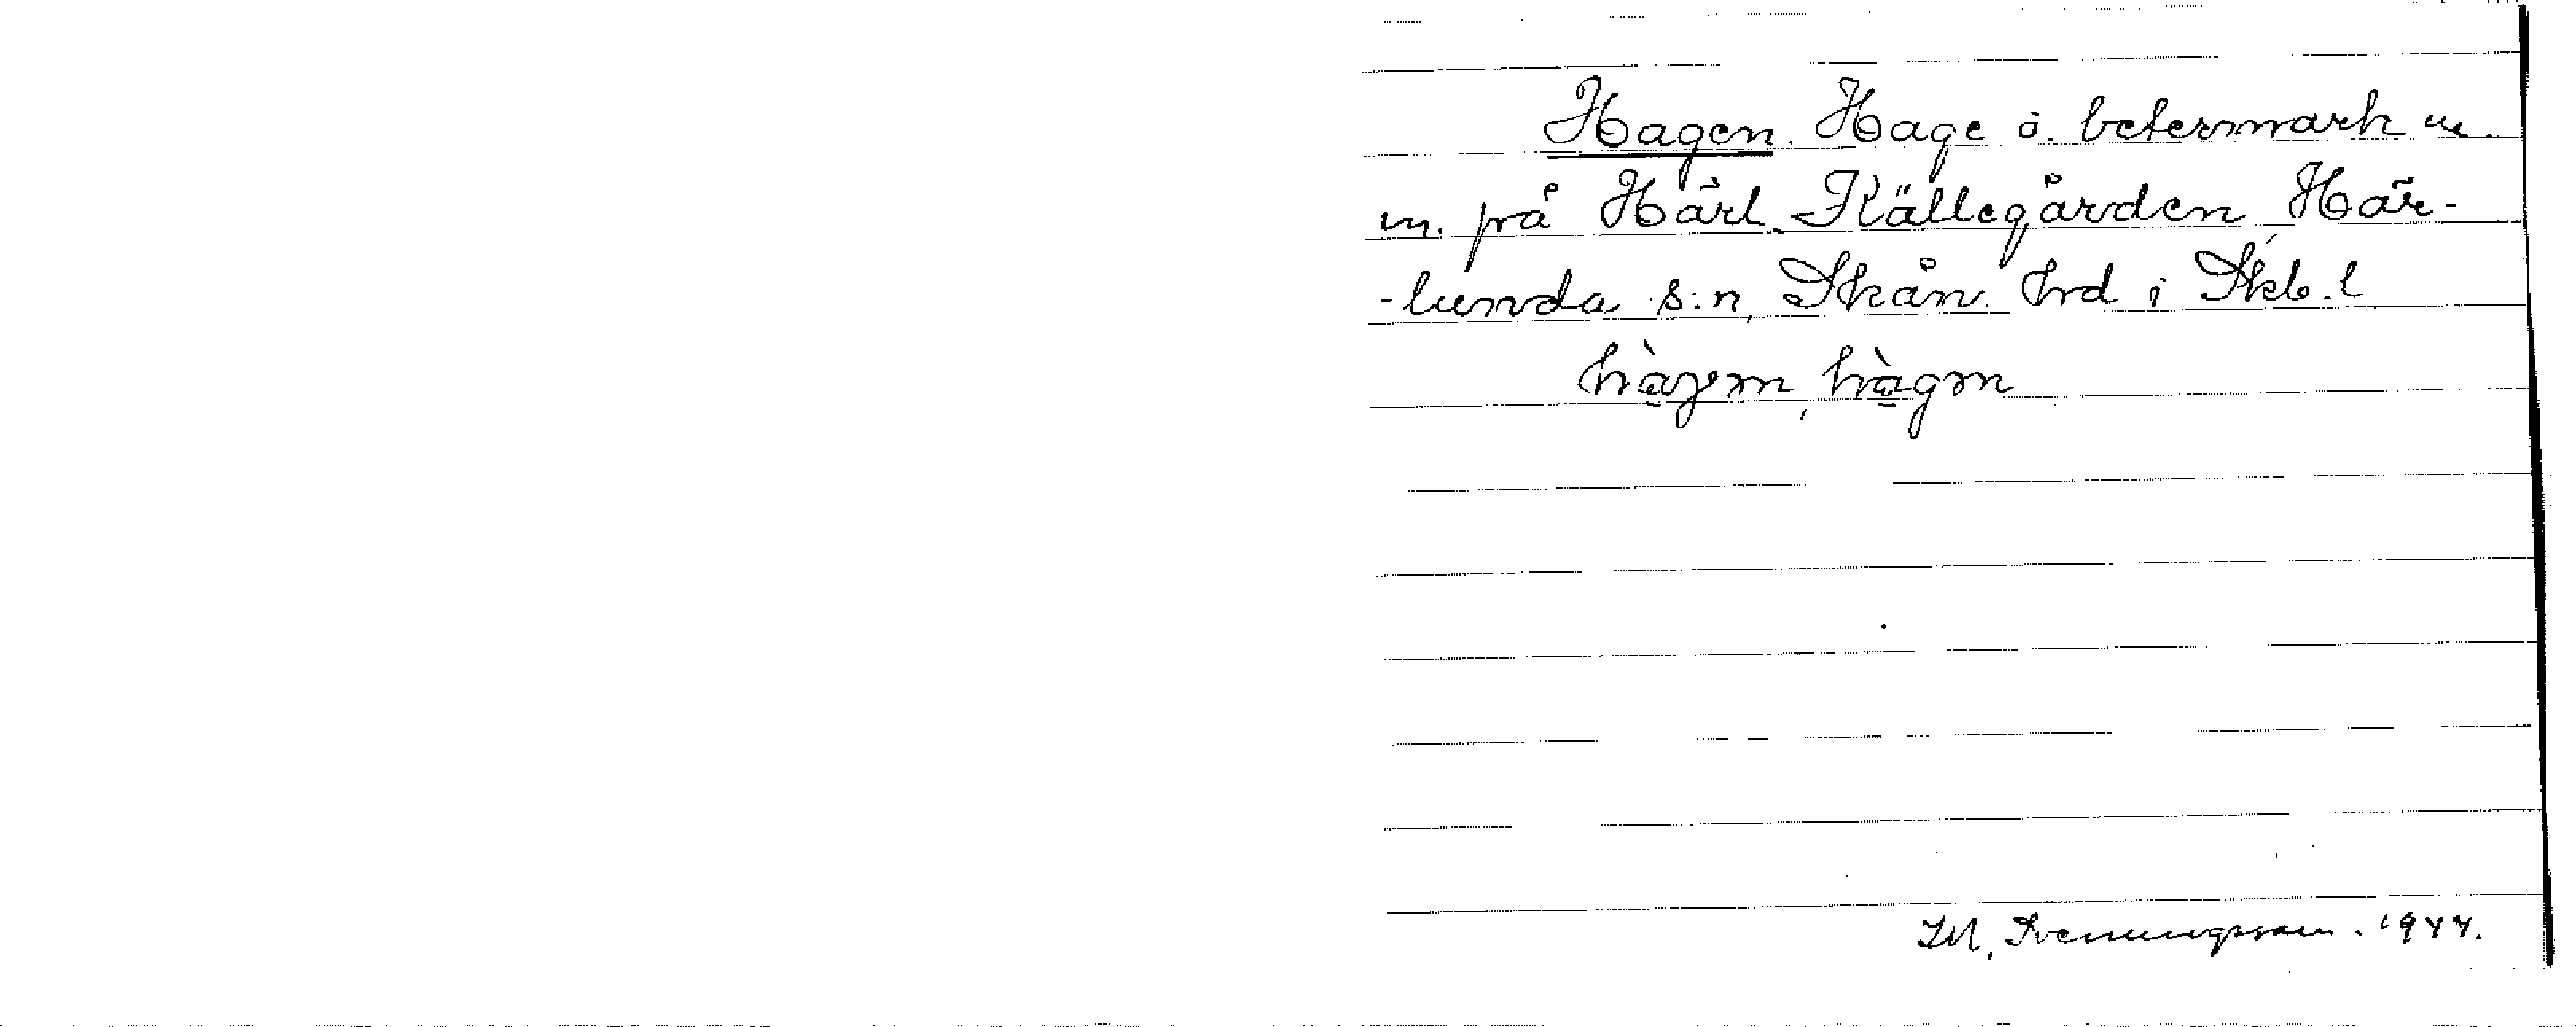 Hagen. Hage o. betesmark m.
m. på Härl. Källegården, Här-
-lunda s:n, Skån. hrd i Skb. l
hàgen, hàgm
M. Svenungsson. 1944.